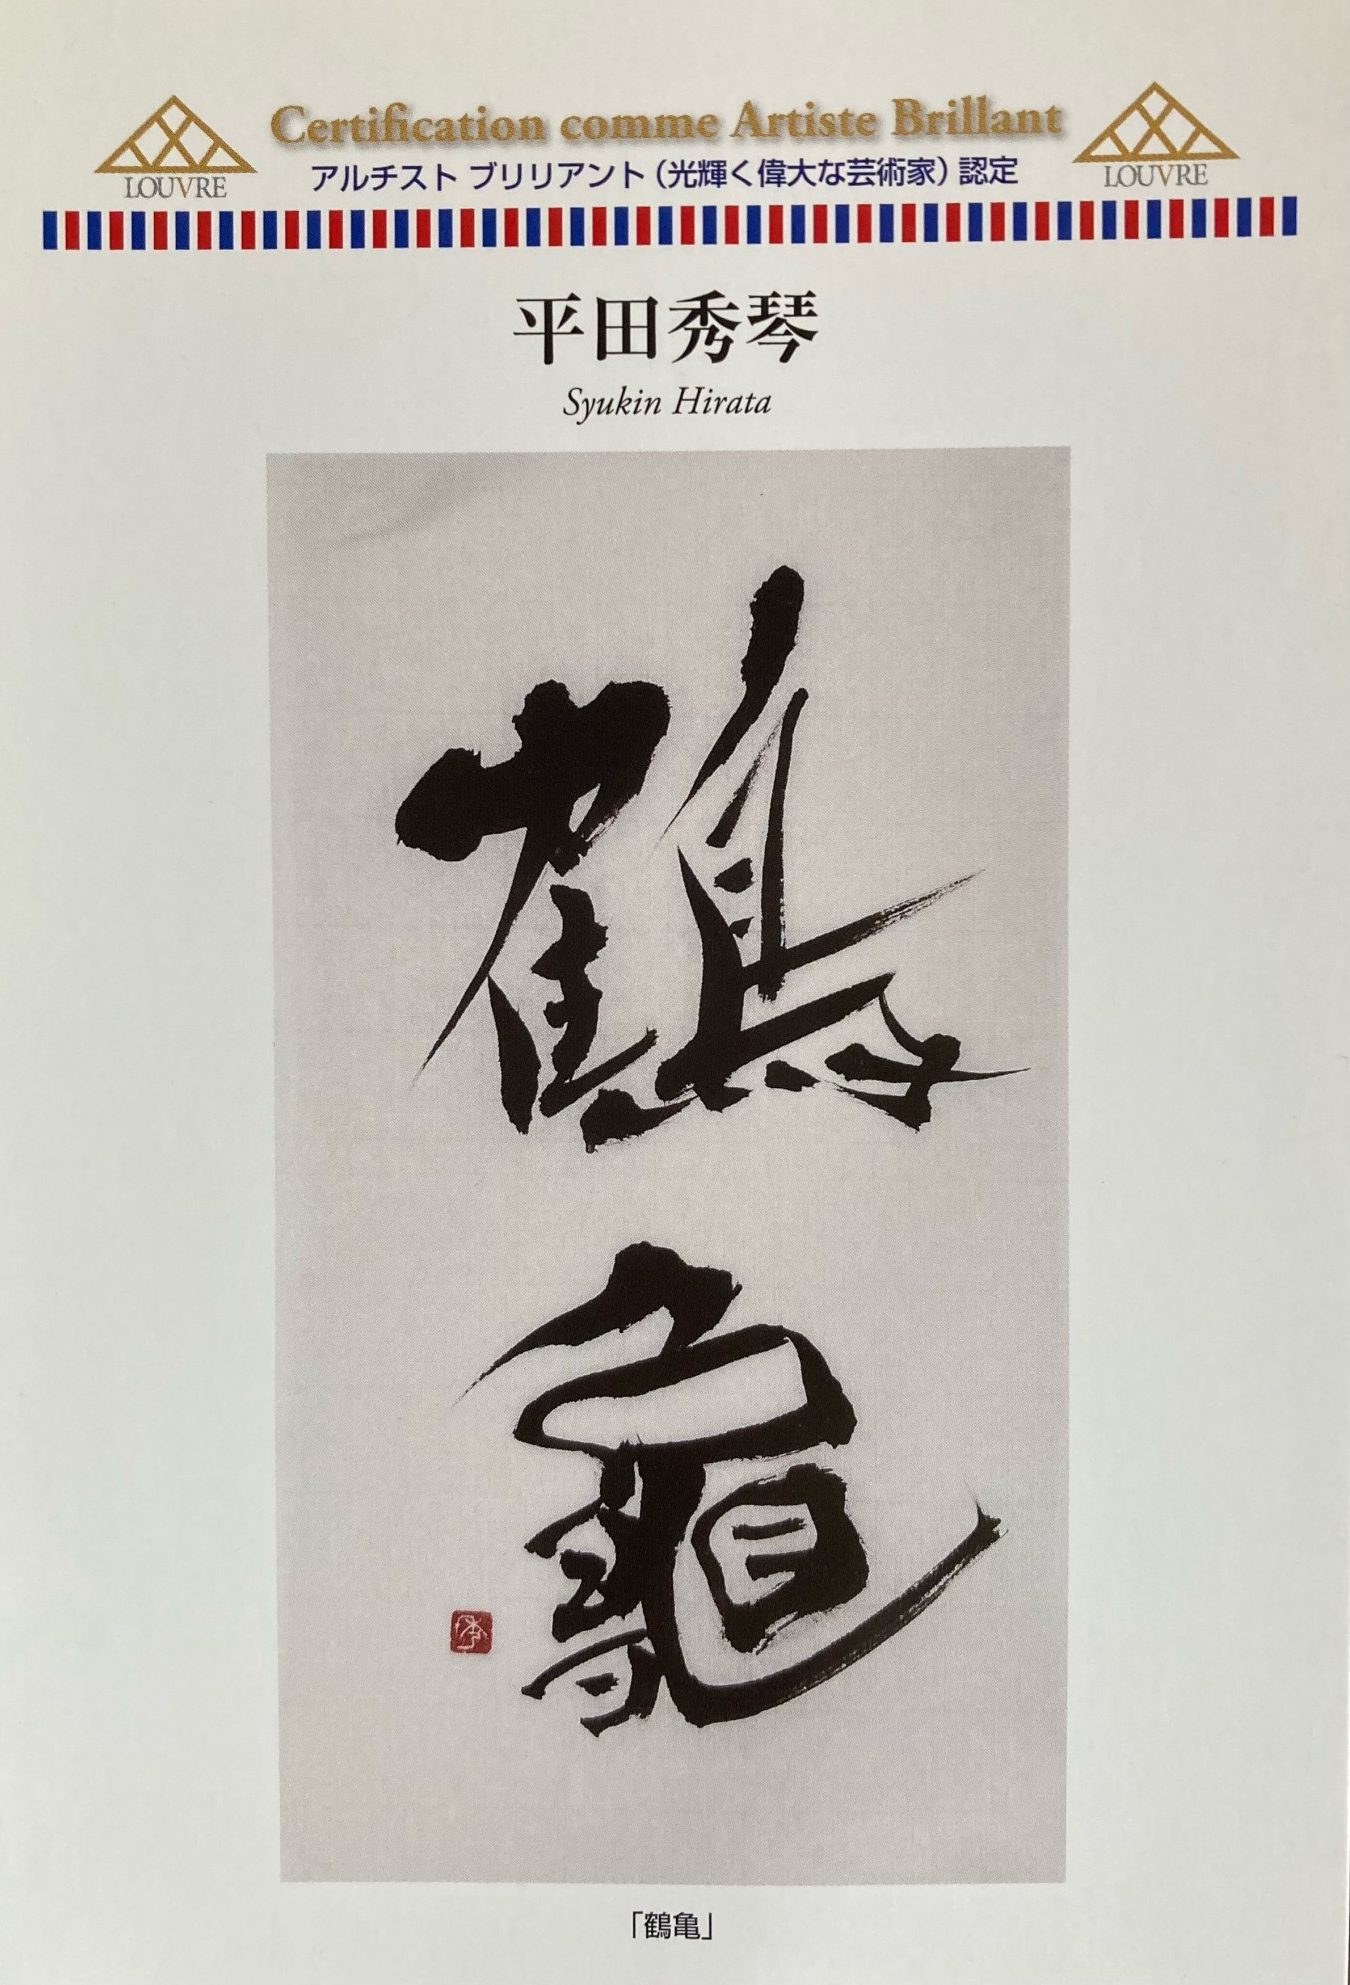 Certification comme Artiste Brillant
アルチスト ブリリアント（光輝く偉大な芸術家）認定
LOUVRE
LOUVRE
平田秀琴
Syukin Hirata
鶴
龜
「鶴亀」